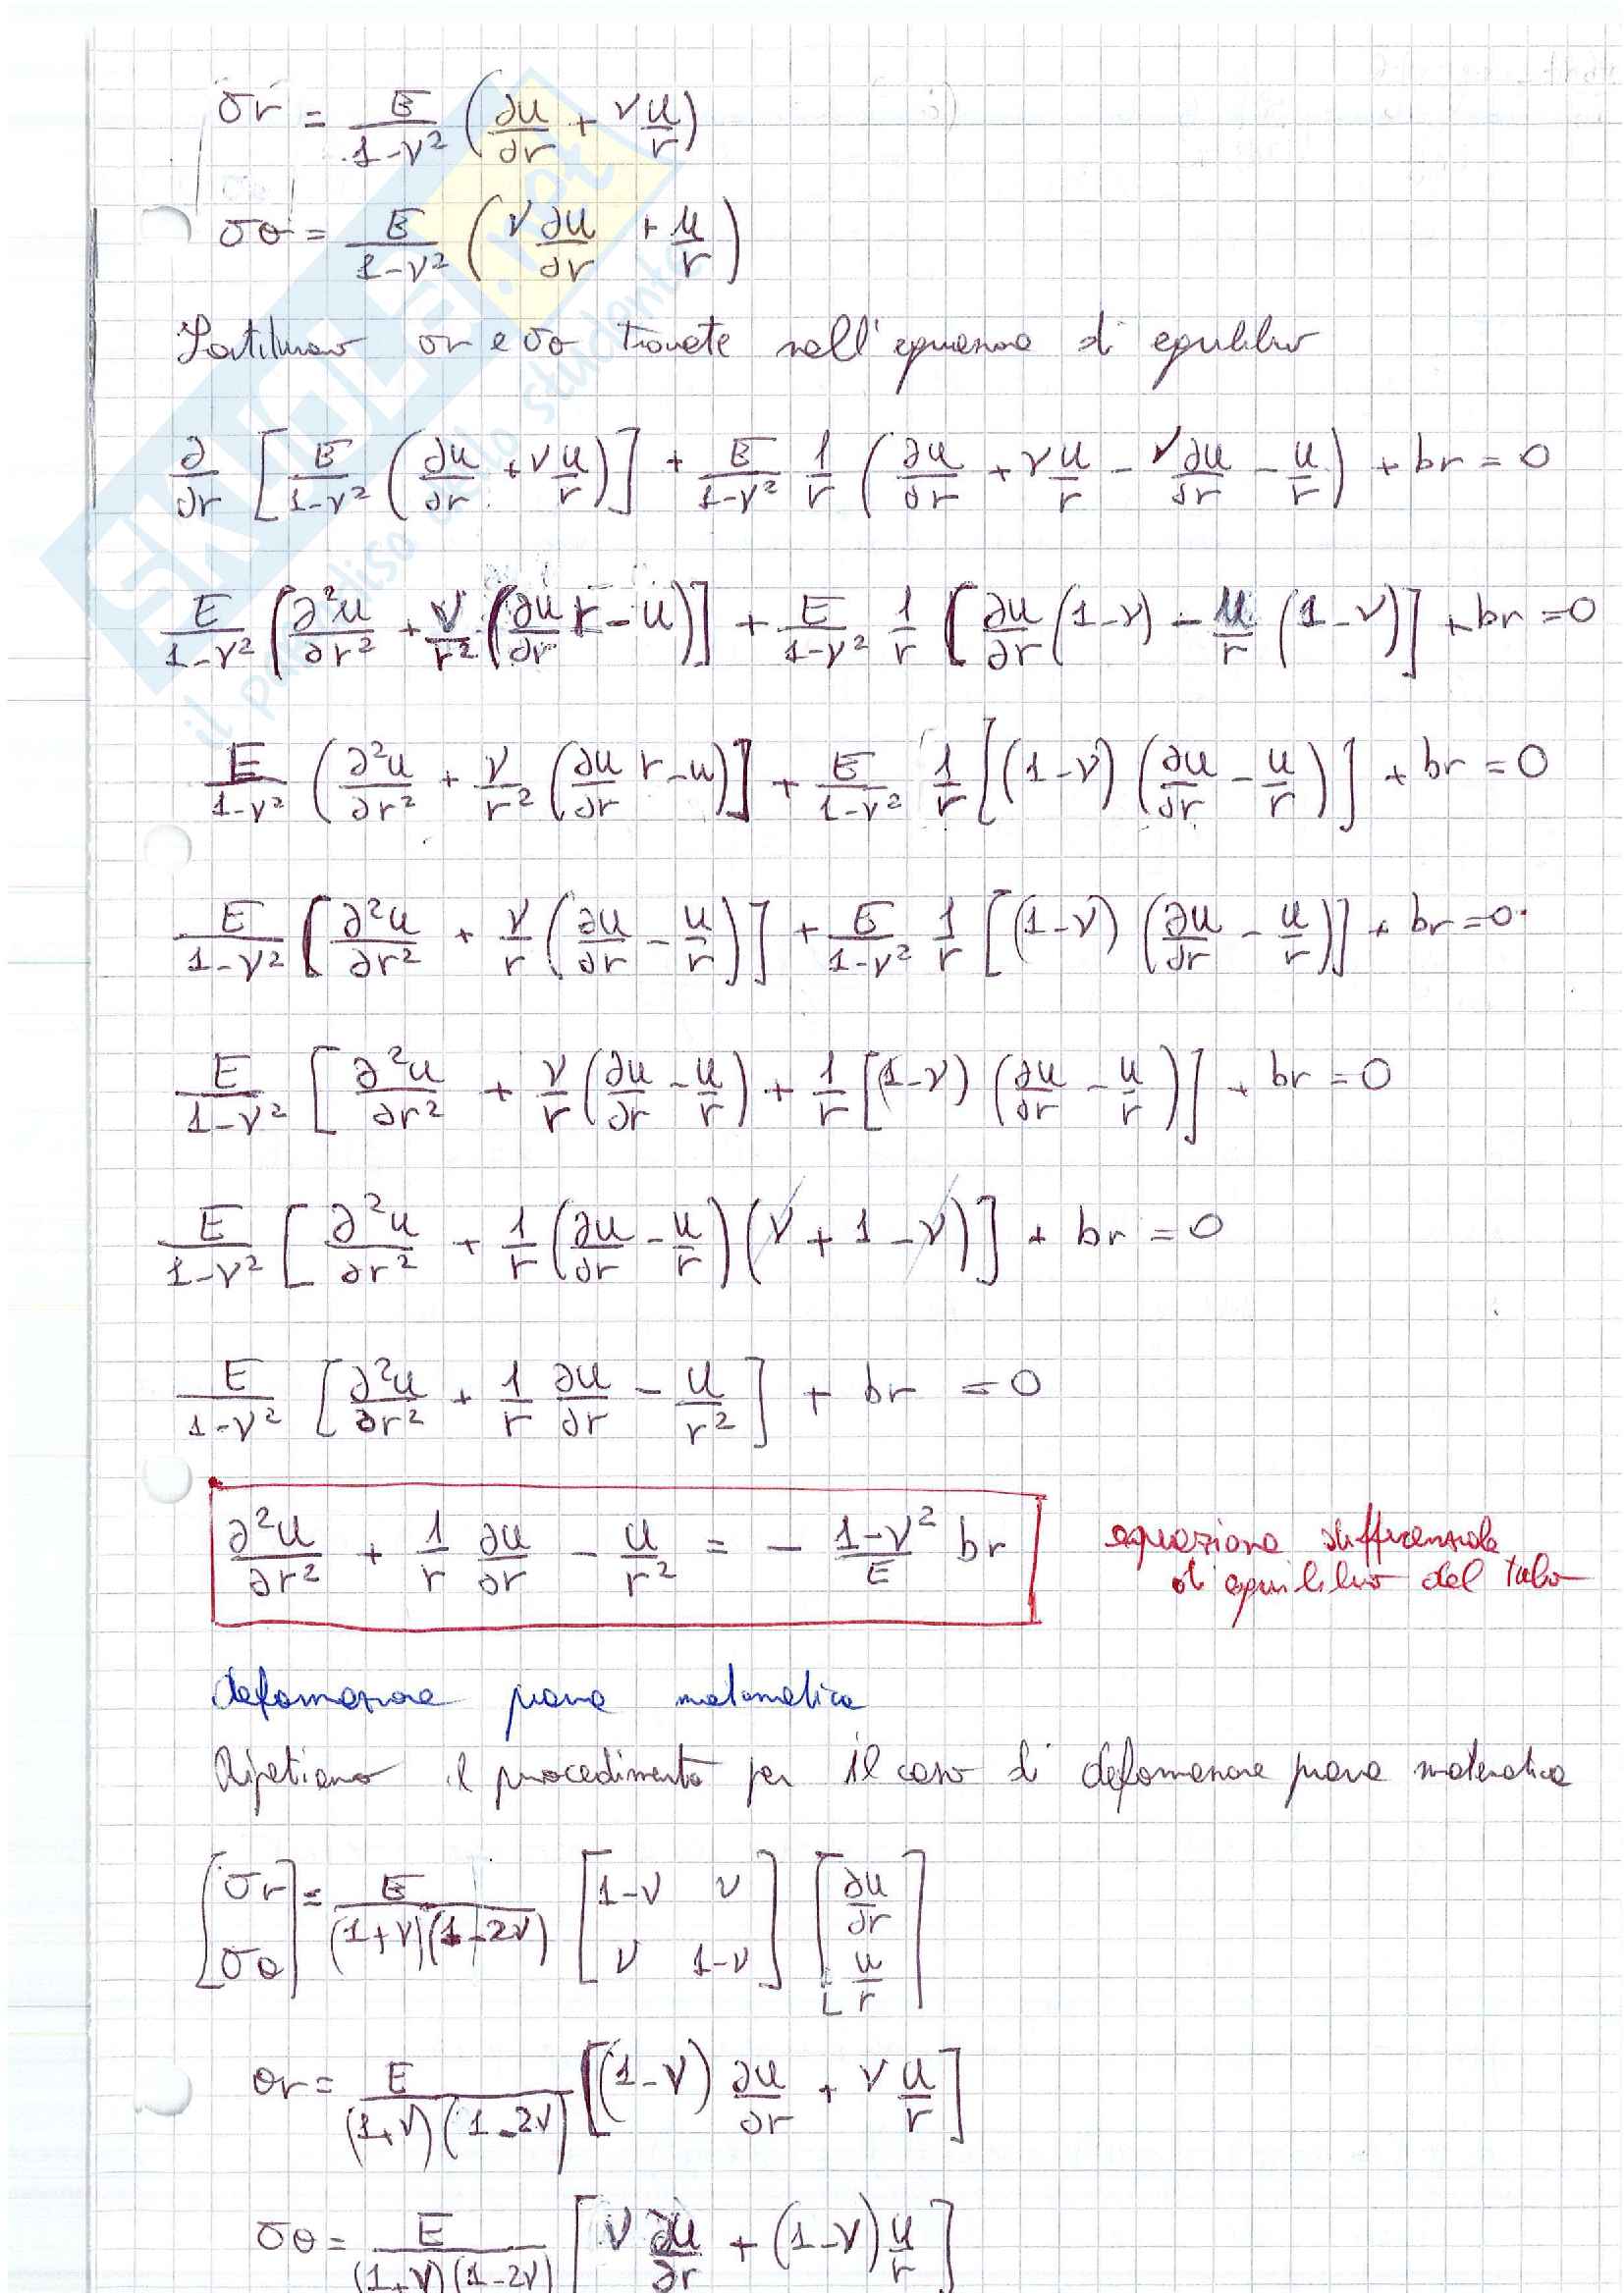 σr = E/(1-ν²) (∂u/∂r + ν u/r)
σθ = E/(1-ν²) (ν ∂u/∂r + u/r)
Sostituiamo σr e σθ trovate nell'equazione di equilibrio
∂/∂r [E/(1-ν²) (∂u/∂r + ν u/r)] + E/(1-ν²) 1/r (∂u/∂r + ν u/r - ν ∂u/∂r - u/r) + br = 0
E/(1-ν²) [∂²u/∂r² + ν/r² (∂u/∂r r - u)] + E/(1-ν²) 1/r [∂u/∂r (1-ν) - u/r (1-ν)] + br = 0
E/(1-ν²) (∂²u/∂r² + ν/r² (∂u/∂r r - u)] + E/(1-ν²) 1/r [(1-ν) (∂u/∂r - u/r)] + br = 0
E/(1-ν²) [∂²u/∂r² + ν/r (∂u/∂r - u/r)] + E/(1-ν²) 1/r [(1-ν) (∂u/∂r - u/r)] + br = 0
E/(1-ν²) [∂²u/∂r² + ν/r (∂u/∂r - u/r) + 1/r [(1-ν) (∂u/∂r - u/r)] + br = 0
E/(1-ν²) [∂²u/∂r² + 1/r (∂u/∂r - u/r) (ν + 1 - ν)] + br = 0
E/(1-ν²) [∂²u/∂r² + 1/r ∂u/∂r - u/r²] + br = 0
∂²u/∂r² + 1/r ∂u/∂r - u/r² = - (1-ν²)/E br
equazione differenziale
di equilibrio del tubo
deformazione piana matematica
Ripetiamo il procedimento per il caso di deformazione piana matematica
[σr σθ] = E/((1+ν)(1-2ν)) [1-ν ν ν 1-ν] [∂u/∂r u/r]
σr = E/((1+ν)(1-2ν)) [(1-ν) ∂u/∂r + ν u/r]
σθ = E/((1+ν)(1-2ν)) [ν ∂u/∂r + (1-ν) u/r]
SKUOLA.net
il paradiso dello studente